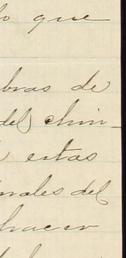 lo que
bras de
del chin-
estas
rales del
hacer